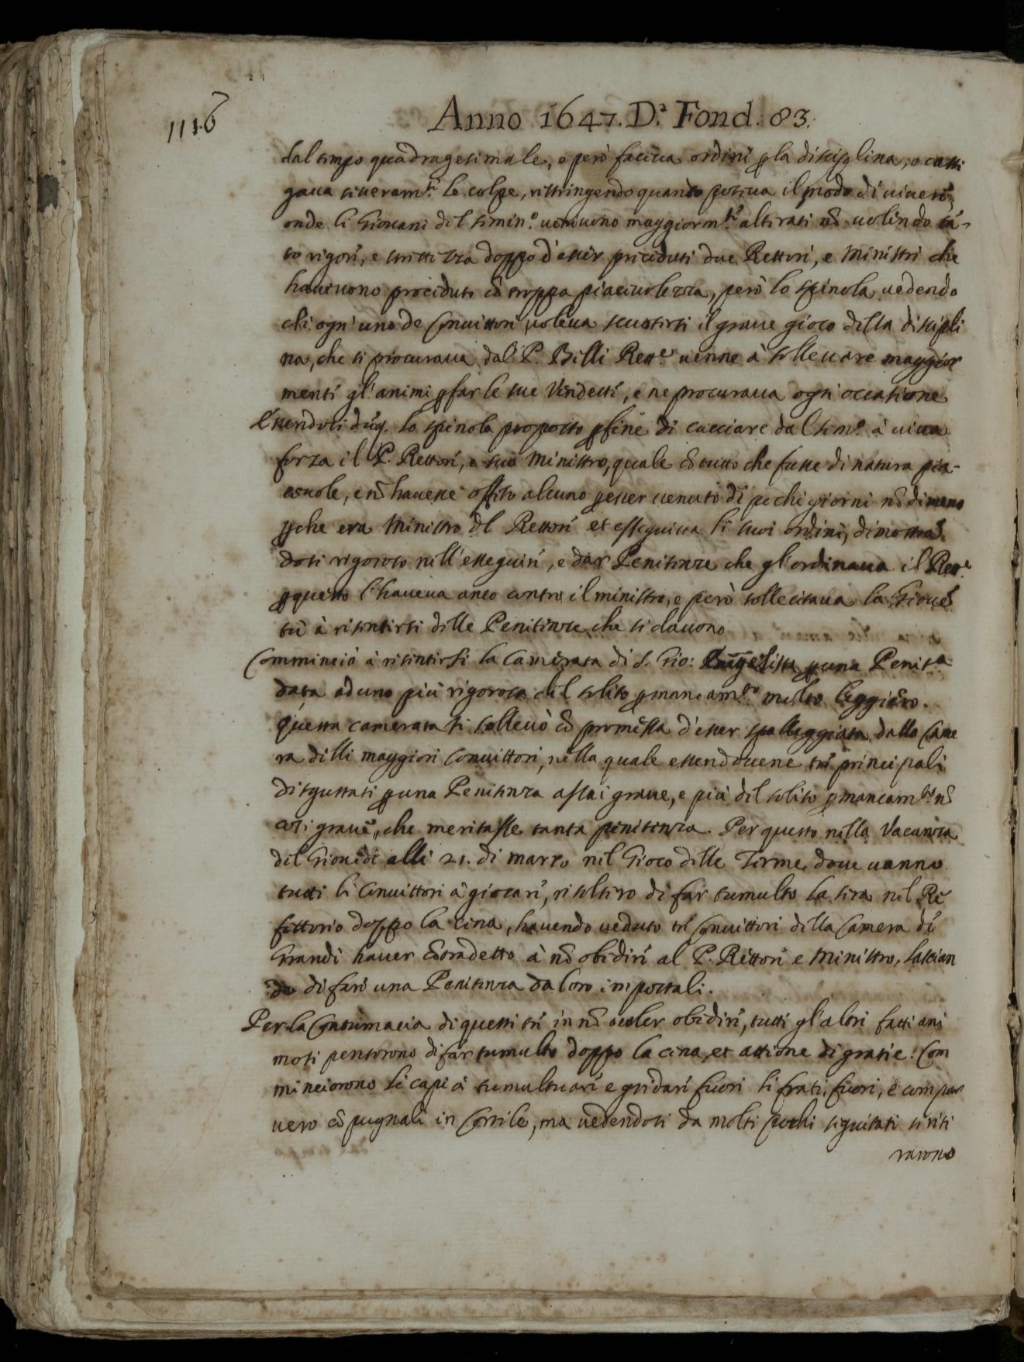 1116
Anno 1647. D.ª Fond. 83.
dal tempo quadragesimale, e però faceua ordini p la disciplina, e casti
gaua seueram.te le colpe, ristringendo quanto poteua il modo di uiuere,
onde li Giouani del Semin.o ueniuono maggiorm.te alterati nõ uolendo tã-
to rigore, e strettezza doppo d'esser preceduti due Rettori, e Ministri che
haueuono proceduti cõ troppa piaceuolezza, però lo Spinola uedendo
che ogn'uno de Conuittori uoleua scuotersi il graue giogo della discipli
na, che si procuraua dal P. Billi Rett.e uenne à solleuare maggior
mente gl'animi p far le sue Vendette, e ne procuraua ogni occasione
Essendosi duq. lo Spinola proposto p fine di cacciare dal Sem.o à uiua
forza il P. Rettore, e suo Ministro, quale cõ tutto che fusse di natura pia-
ceuole, e nõ hauesse offeso alcuno p esser uenuto di pochi giorni nõ dimeno
pche era Ministro del Rettore et essequiua li suoi ordini, dimostrãd
dosi rigoroso nell'esseguire, e dar Penitenze che gl'ordinaua il Rett.e
p questo l'haueua anco contro il ministro, e però sollecitaua la Giouẽ
tù à risentirsi delle Penitenze che si dauono
Comminciò à risentirsi la Camerata di S. Gio: Euãgelista p una Penit.a
data ad uno più rigorosa del solito p mancam.to molto leggiero.
Questa camerata si solleuò cõ promessa d'esser spalleggiata dalla Came
ra delli maggiori Conuittori, nella quale essendouene trè principali
disgustati p una Penitenza assai graue, e più del solito p mancam.to nõ
così graue, che meritasse tanta penitenza. Per questo nella Vacanza
del Giouedì alli 21. di marzo nel Gioco delle Terme doue uanno
tutti li Conuittori à giocare, risoluero di far tumulto la sera nel Re
fettorio doppo la cena, hauendo ueduto trè Conuittori della Camera de
Grandi hauer contradetto à nõ obedire al P. Rettore e Ministro, lascian
do di fare una Penitenza da loro impostali.
Per la Contumacia di questi trè in nõ uoler obidire, tutti gl'altri fatti ani
mosi pensorono di far tumulto doppo la cena, et attione di gratie. Com
minciorono li capi à tumultuare e gridare fuori li frati, fuori, e compar
uero cõ pugnali in Cortile, ma uedendosi da molti pochi seguitati si riti
rarono